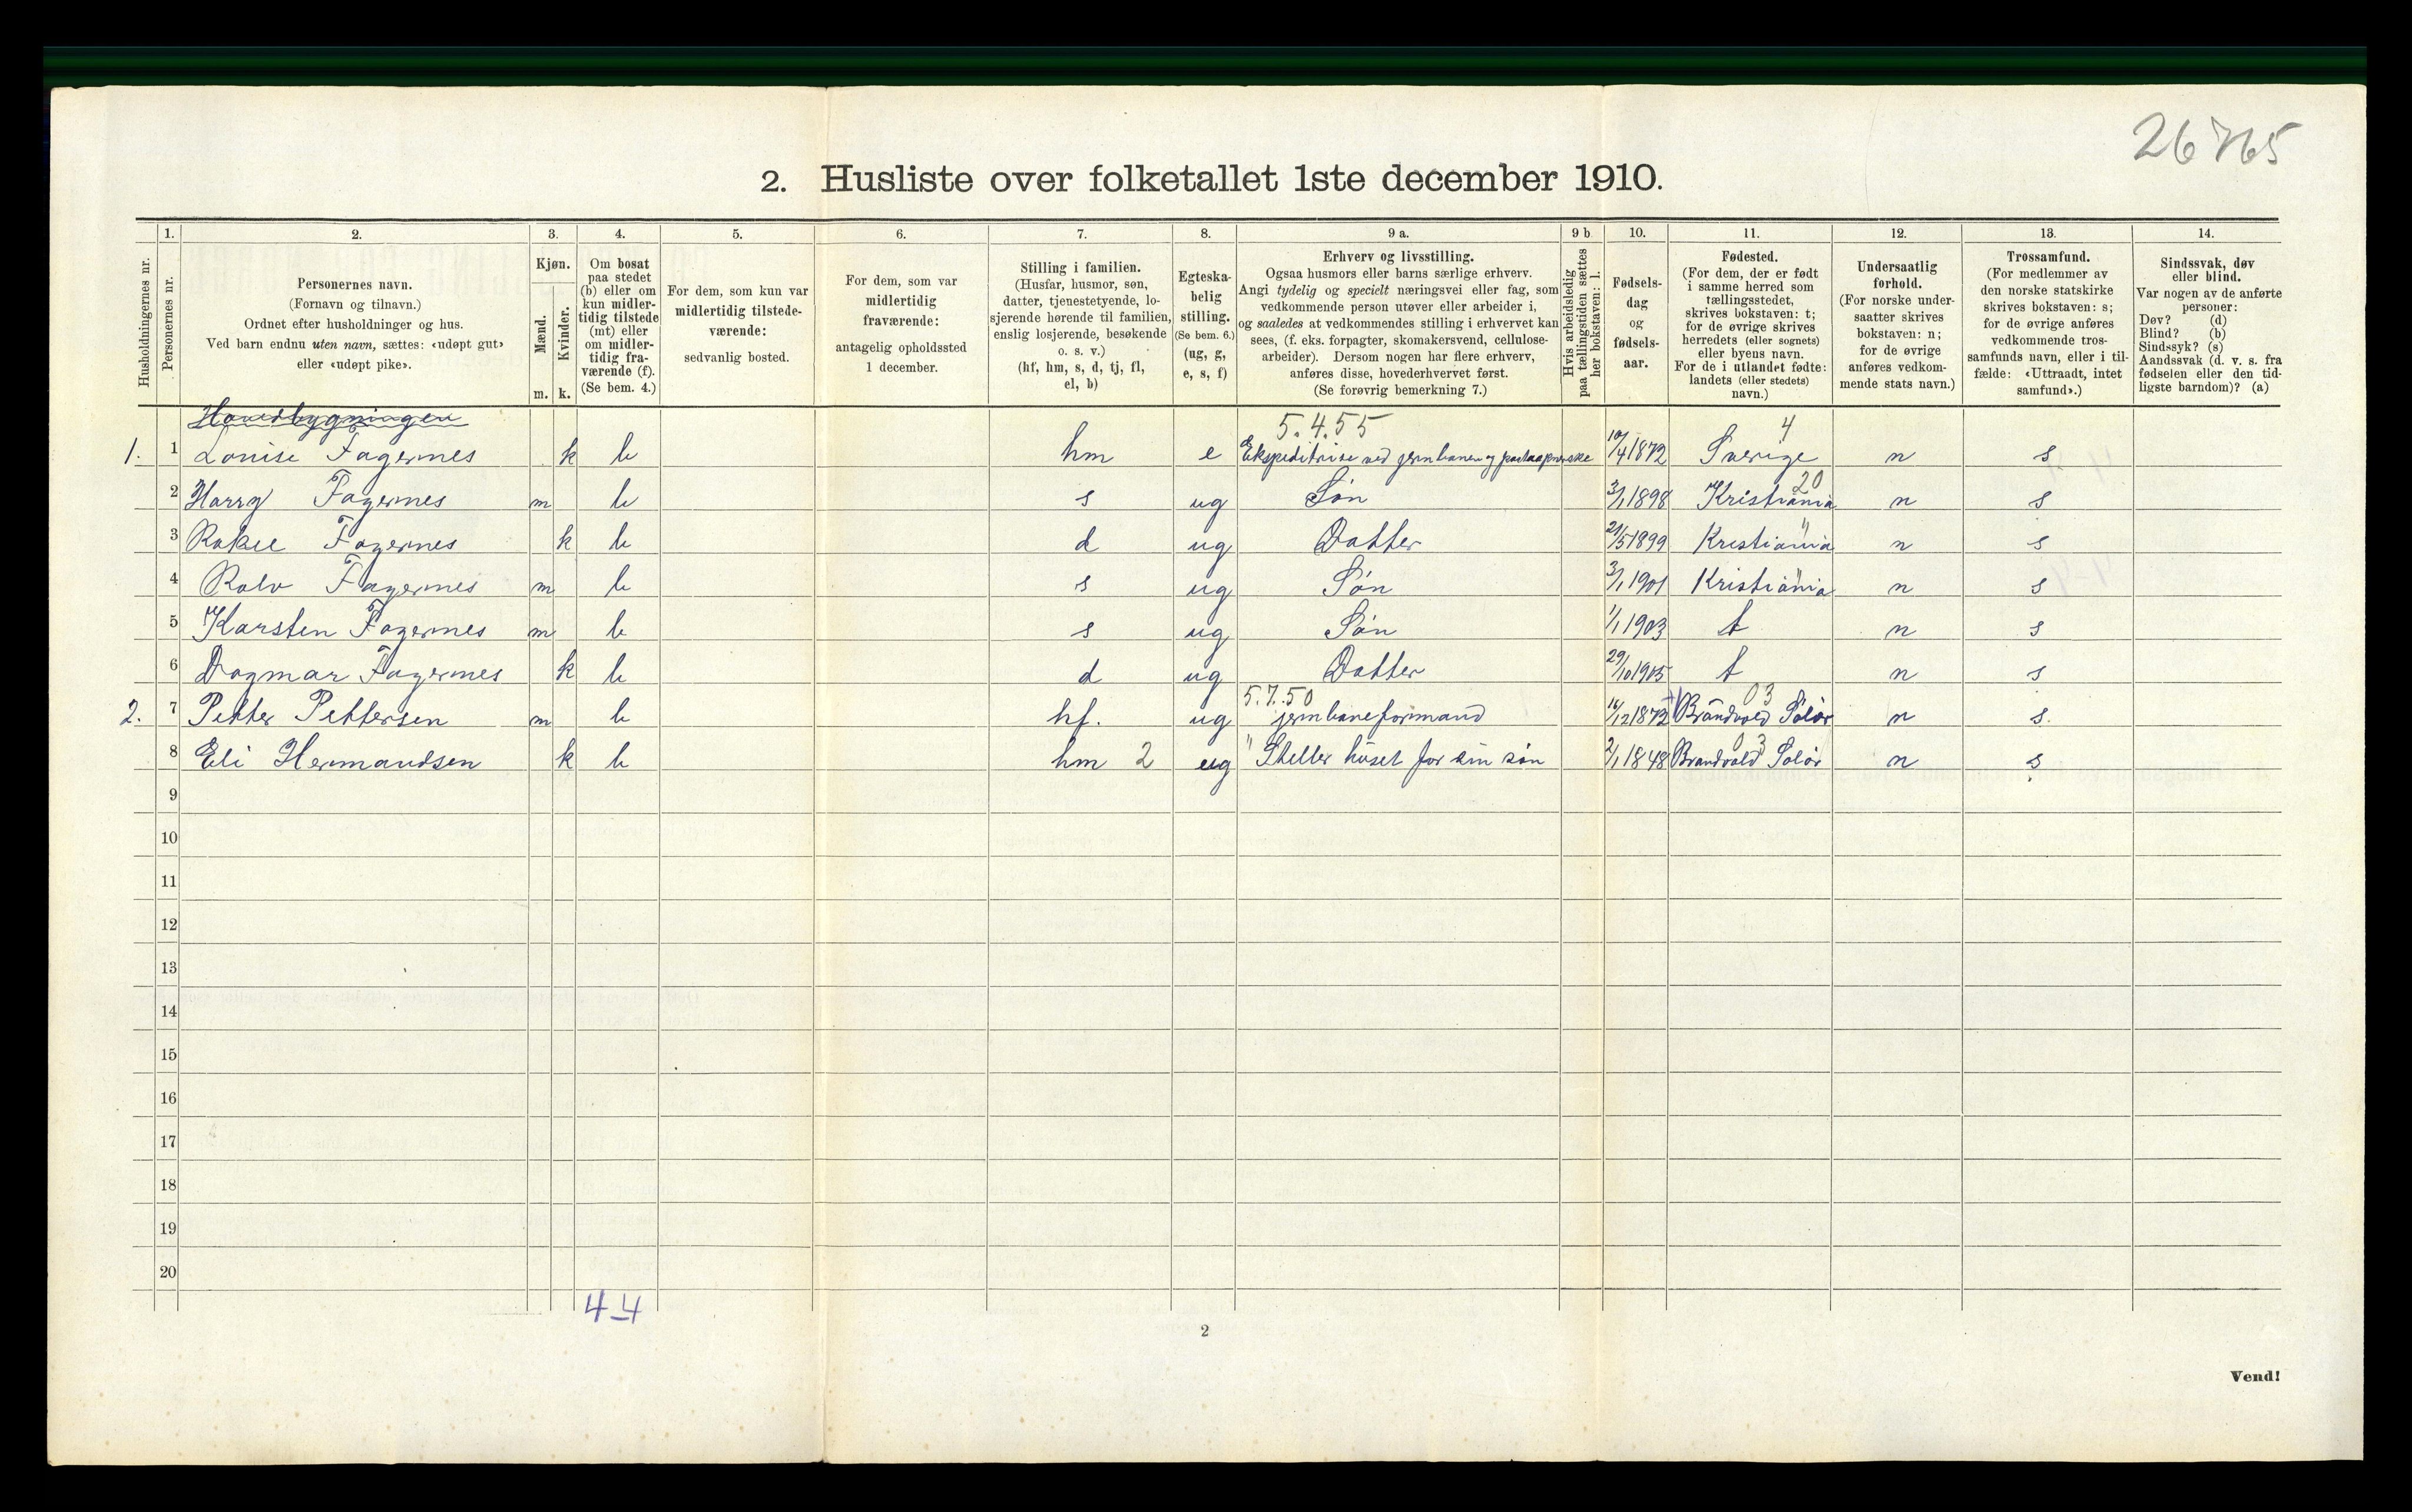 26765
2. Husliste over folketallet 1ste december 1910.
1. 2. 3. 4. 5. 6. 7. 8. 9 a. 9 b. 10. 11. 12. 13. 14.
Husholdningernes nr.
Personernes nr.
Personernes navn.
(Fornavn og tilnavn.)
Ordnet efter husholdninger og hus.
Ved barn endnu uten navn, sættes: «udøpt gut»
eller «udøpt pike».
Kjøn.
Mænd.
Kvinder.
m. k.
Om bosat
paa stedet
(b) eller om
kun midler-
tidig tilstede
(mt) eller
om midler-
tidig fra-
værende (f).
(Se bem. 4.)
For dem, som kun var
midlertidig tilstede-
værende:
sedvanlig bosted.
For dem, som var
midlertidig
fraværende:
antagelig opholdssted
1 december.
Stilling i familien.
(Husfar, husmor, søn,
datter, tjenestetyende, lo-
sjerende hørende til familien,
enslig losjerende, besøkende
o. s. v.)
(hf, hm, s, d, tj, fl,
el, b)
Egteska-
belig
stilling.
(Se bem. 6.)
(ug, g,
e, s, f)
Erhverv og livsstilling.
Ogsaa husmors eller barns særlige erhverv.
Angi tydelig og specielt næringsvei eller fag, som
vedkommende person utøver eller arbeider i,
og saaledes at vedkommendes stilling i erhvervet kan
sees, (f. eks. forpagter, skomakersvend, cellulose-
arbeider). Dersom nogen har flere erhverv,
anføres disse, hovederhvervet først.
(Se forøvrig bemerkning 7.)
Hvis arbeidsledig
paa tællingstiden sættes
her bokstaven: l.
Fødsels-
dag
og
fødsels-
aar.
Fødested.
(For dem, der er født
i samme herred som
tællingsstedet,
skrives bokstaven: t;
for de øvrige skrives
herredets (eller sognets)
eller byens navn.
For de i utlandet fødte:
landets (eller stedets)
navn.)
Undersaatlig
forhold.
(For norske under-
saatter skrives
bokstaven: n;
for de øvrige
anføres vedkom-
mende stats navn.)
Trossamfund.
(For medlemmer av
den norske statskirke
skrives bokstaven: s;
for de øvrige anføres
vedkommende tros-
samfunds navn, eller i til-
fælde: «Uttraadt, intet
samfund».)
Sindssvak, døv
eller blind.
Var nogen av de anførte
personer:
Døv? (d)
Blind? (b)
Sindssyk? (s)
Aandssvak (d. v. s. fra
fødselen eller den tid-
ligste barndom)? (a)
Hovedbygningen 5.4.55 4
1. 1 Louise Fagernes k b hm e Ekspeditrise ved jernbanen og postaapnerske 10/4 1872 Sverige n s
20
2 Harry Fagernes m b s ug Søn 3/1 1898 Kristiania n s
3 Rakel Fagernes k b d ug Datter 21/5 1899 Kristiania n s
4 Rolv Fagernes m b s ug Søn 3/1 1901 Kristiania n s
5 Karsten Fagernes m b s ug Søn 1/1 1903 t n s
6 Dagmar Fagernes k b d ug Datter 29/10 1905 t n s
5.7.50 03
2. 7 Petter Pettersen m b hf. ug jernbaneformand 16/12 1872 Brandvold Solør n s.
03
8 Eli Hermandsen k b hm 2 ug " Steller huset for sin søn 2/1 1848 Brandvold Solør n s
9
10
11
12
13
14
15
16
17
18
19
20
4-4
2
Vend!